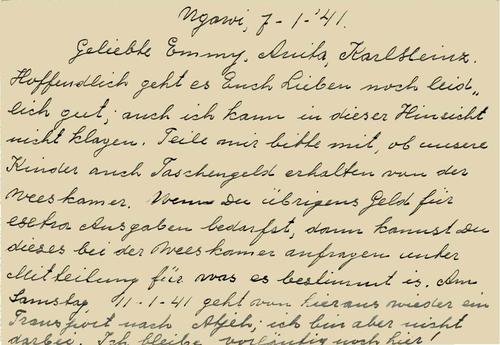 Ngawi, 7-1-'41.
Geliebte Emmy, Anita, Karlheinz.
Hoffendlich geht es Euch Lieben noch leid„
lich gut; auch ich kann in dieser Hinsicht
nicht klagen. Teile mir bitte mit, ob unsere
Kinder auch Taschengeld erhalten von der
Weeskamer. Wenn Du übrigens Geld für
extra Ausgaben bedarfst, dann kannst Du
dieses bei der Weeskamer anfragen unter
Mitteilung für was es bestimmt is. Am
Samstag 11-1-41 geht von hieraus wieder ein
Transport nach Atjeh; ich bin aber nicht
darbei. Ich bleibe vorläufig noch hier!